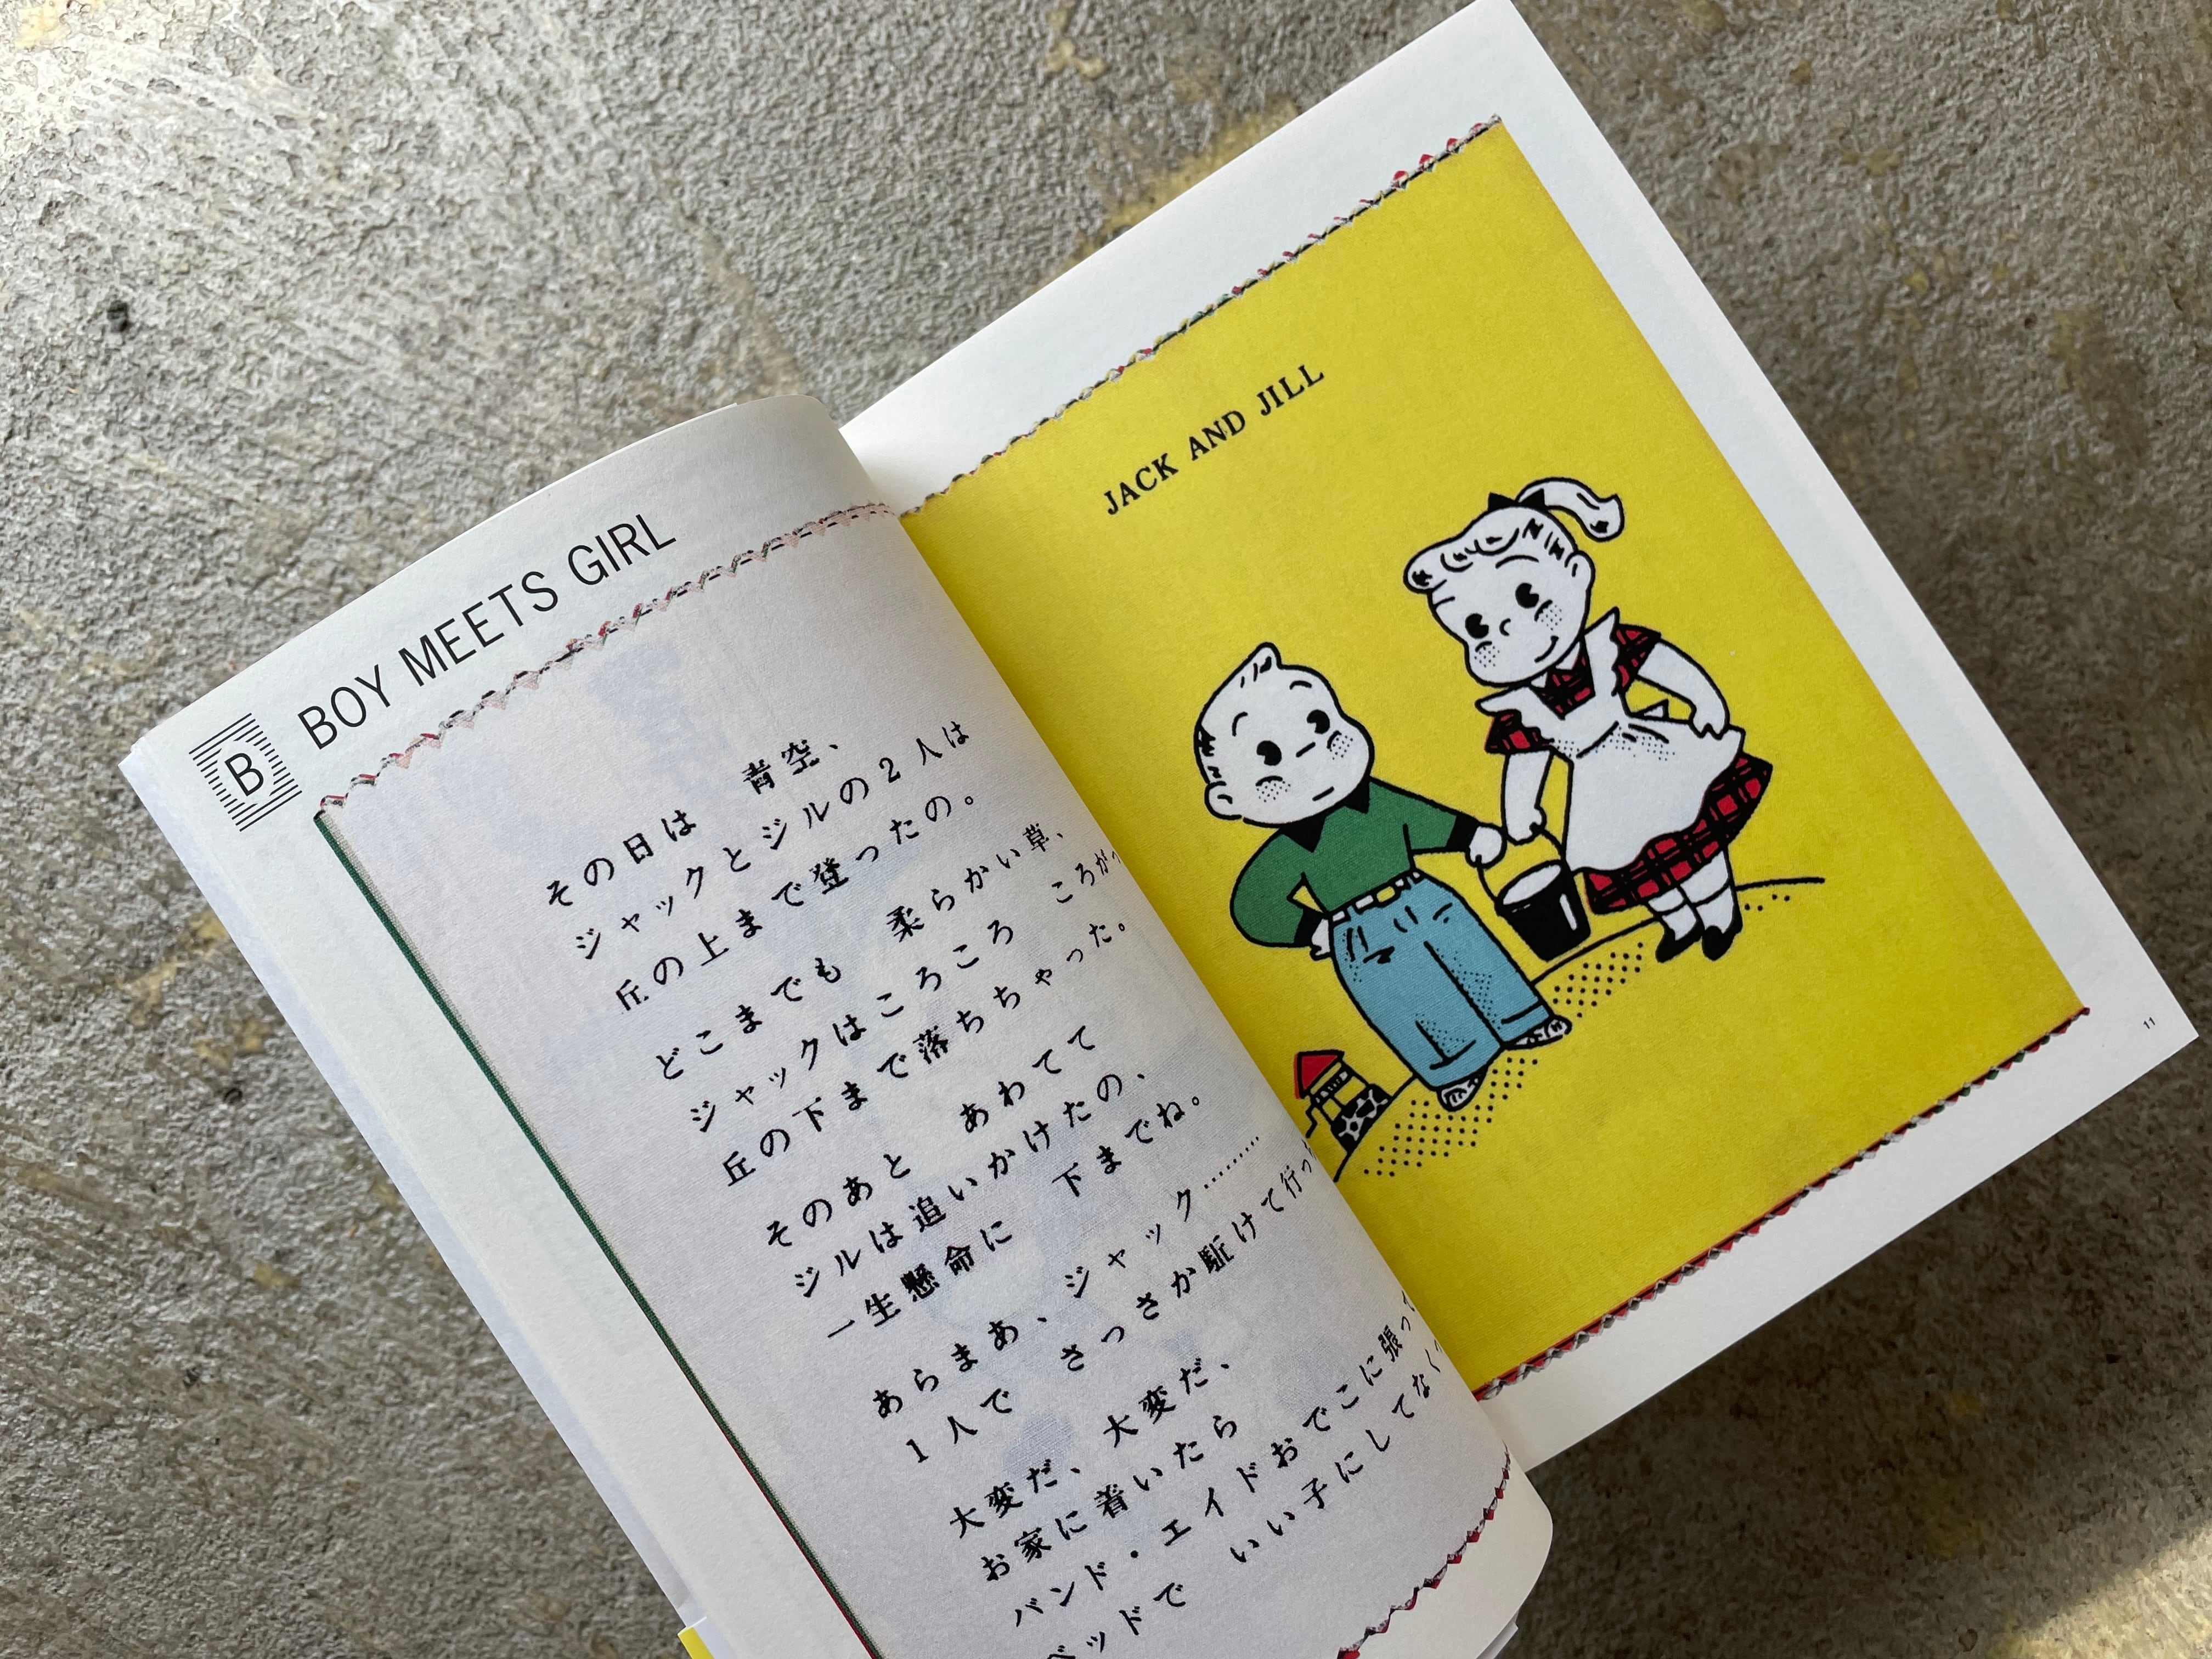 B
BOY MEETS GIRL
その日は　青空、
ジャックとジルの2人は
丘の上まで登ったの。
どこまでも　柔らかい草、
ジャックはころころ　ころがっ
丘の下まで落ちちゃった。
そのあと　あわてて
ジルは追いかけたの、
一生懸命に　下までね。
あらまあ、ジャック………
1人で　さっさか駈けて行っ
大変だ、大変だ、
お家に着いたら
バンド・エイドおでこに張っ
ベッドで　いい子にしてなく
JACK AND JILL
11